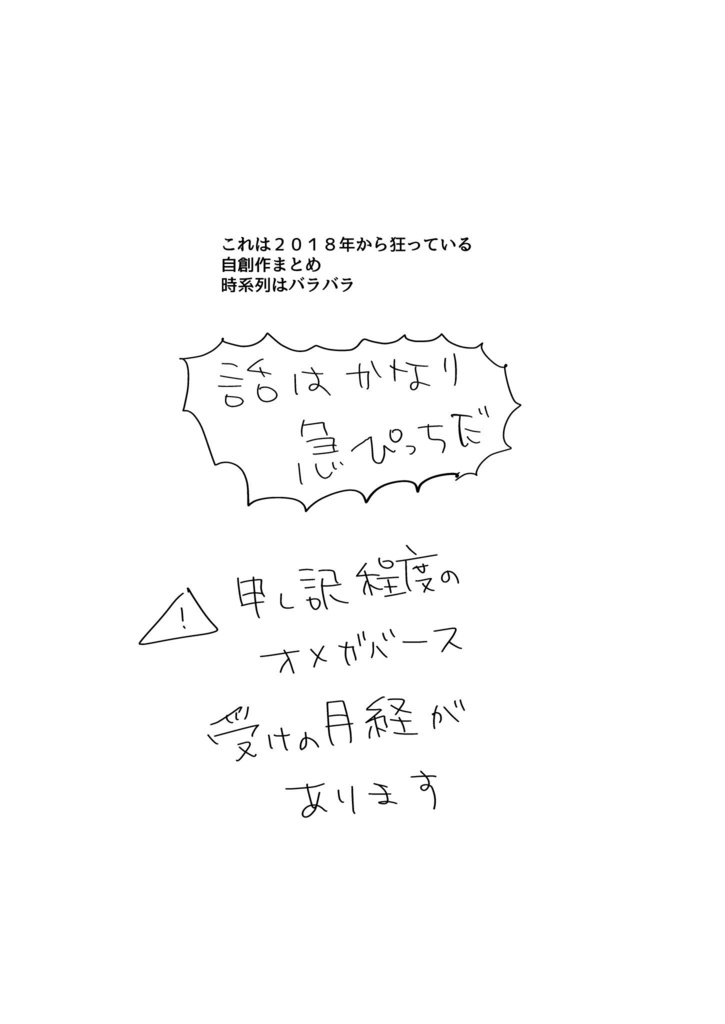 これは２０１８年から狂っている
自創作まとめ
時系列はバラバラ
話はかなり
急ぴっちだ
!
申し訳程度の
オメガバース
受けの月経が
あります